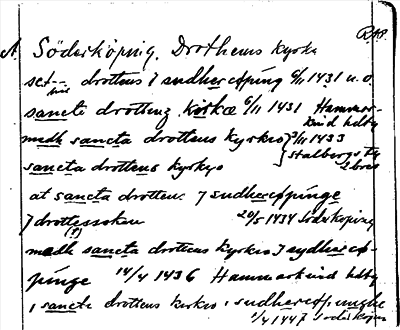 RAP.
St. Söderköping, Drothems kyrka
sct-- drottens J sudhercøping 6/11 1431 u. o.
sancte drotteng kørkæ 6/11 1431 Hammar-
kind hdby
medh sancta drottens kyrkio 3/11 1433
Stalbergs
sancta drottens kyrkyo
at sancta drottens J sudhercøpinge
J drottessoken (?) 20/5 1434 Söderköping
medh sancta drottens kyrkio J sydhercø-
pinge 14/4 1436 Hammarkind hdby
i sancte drottens kirkio i sudhercøpunghe
1/4 1447 Söderköping